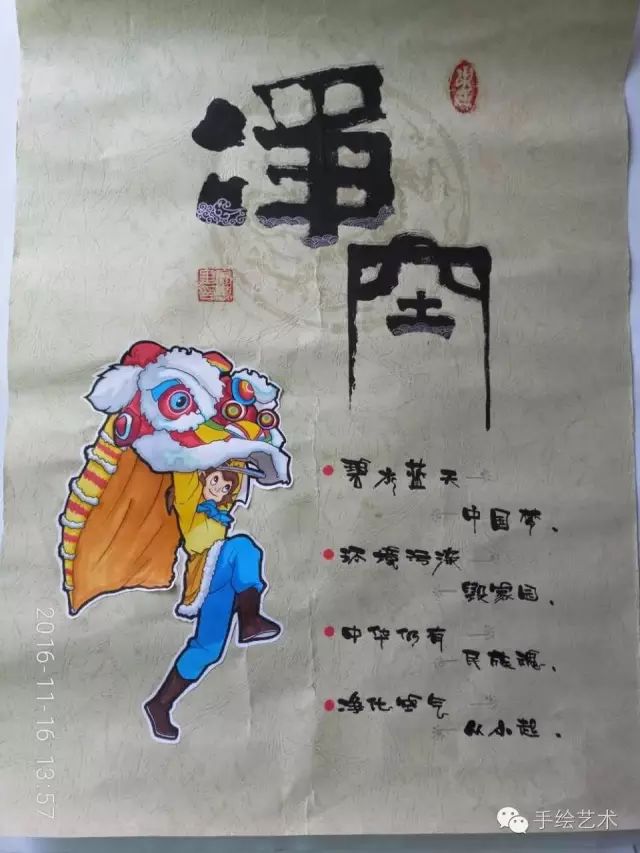 净
空
碧水蓝天
中国梦.
环境污染
毁家园.
中华仍有
民族魂.
净化空气
从小起.
2016-11-16 13:57
手绘艺术